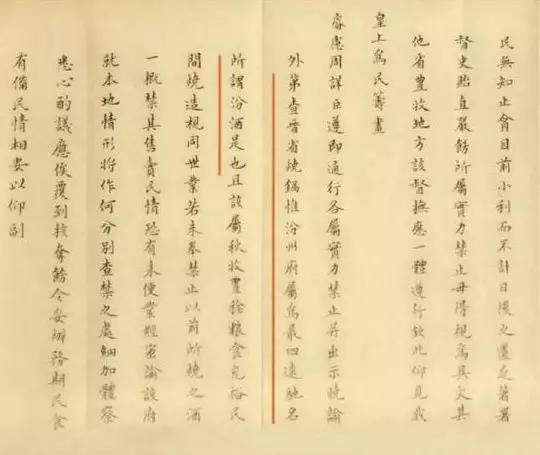 民無知止貪目前小利而不計日後之匱乏著署
督史貽直嚴飭所屬實力禁止毋得視爲具文其
他省豐收地方該督撫應一體遵行欽此仰見我
皇上爲民籌畫
睿慮周詳臣遵即通行各屬實力禁止并出示曉諭
外第查晉省燒鍋惟汾州府屬爲最四遠馳名
所謂汾酒是也且該屬秋收豐稔粮食充裕民
間燒造視同世業若未奉禁止以前所燒之酒
一概禁其售賣民情恐有未便業經密諭該府
就本地情形將作何分別查禁之處細加體察
悉心酌議應俟覆到核奪飭令妥辦務期民食
有備民情相安以仰副